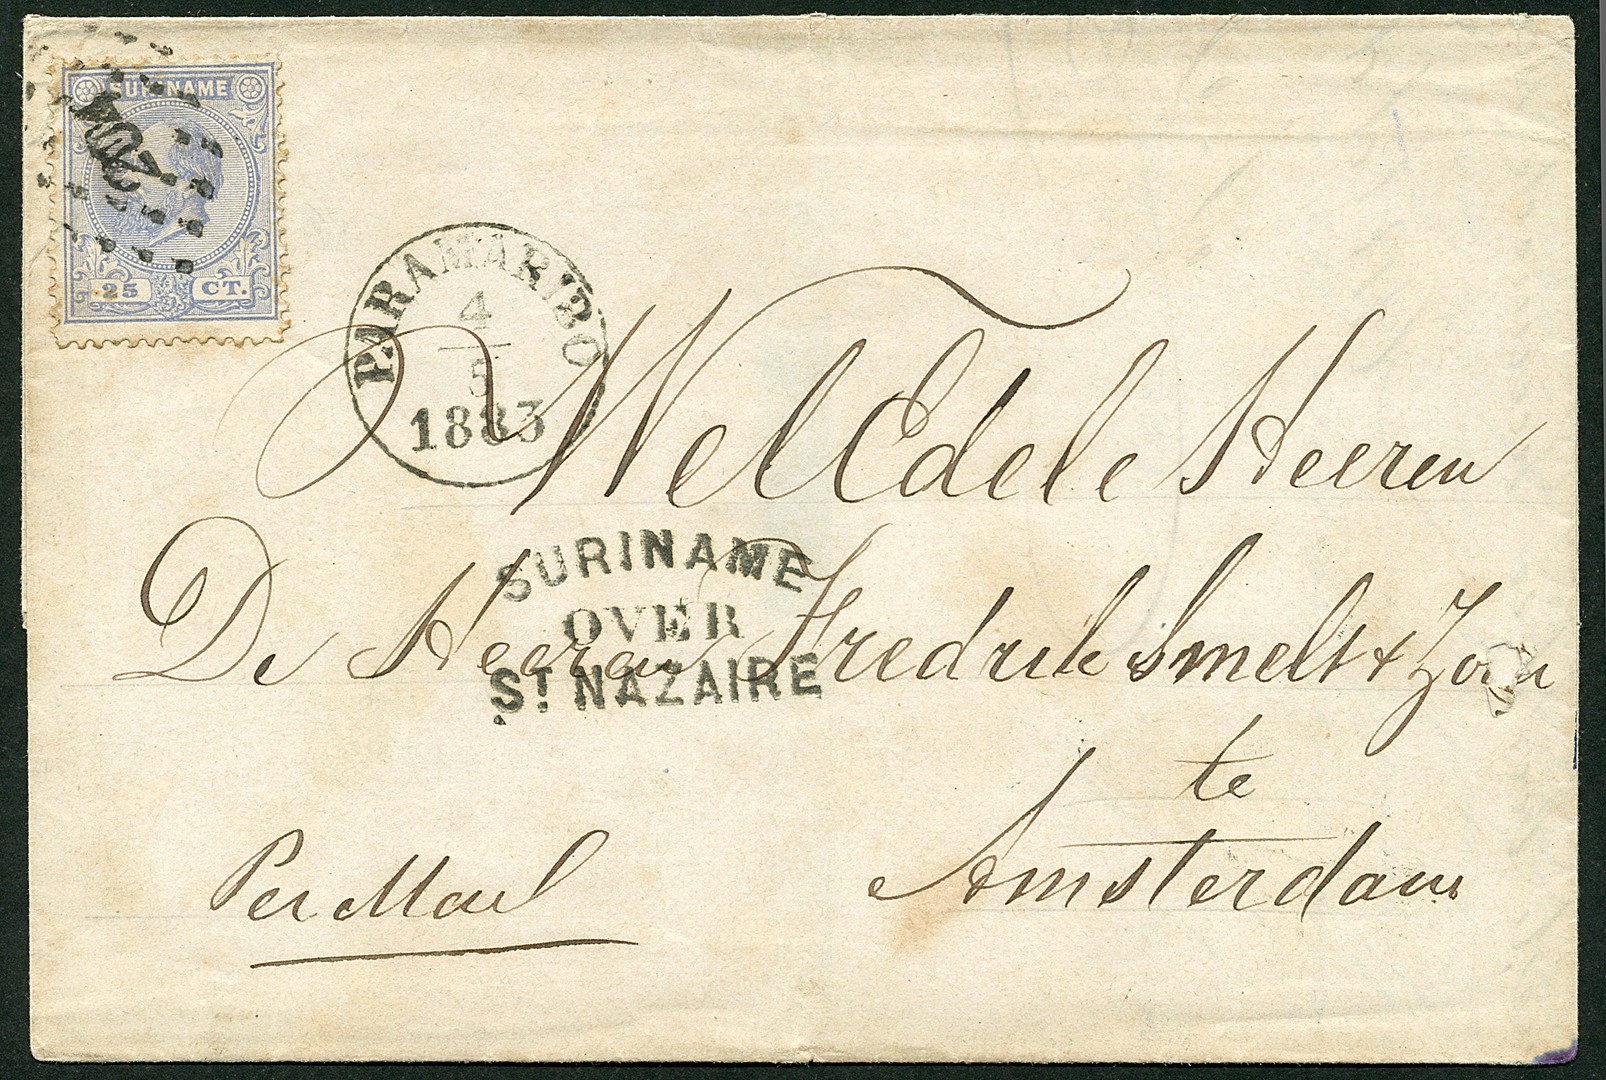 SURINAME
25 CT.
PARAMARIBO
4
5
1883
WelEdele Heeren
De Heeren Fredrik Smelt & Zoon
SURINAME
OVER
ST NAZAIRE
te
Amsterdam
Per Mail